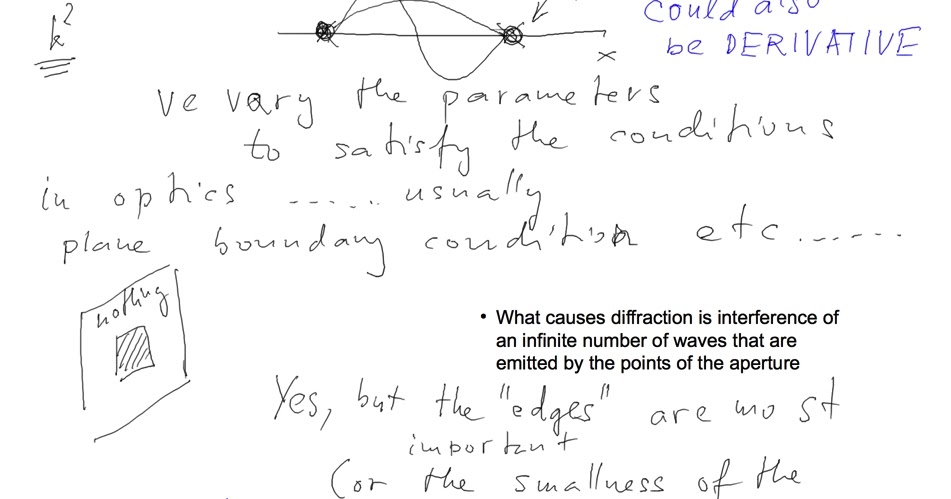 could also
k²
x
be DERIVATIVE
we vary the parameters
to satisfy the conditions
in optics ..... usually
plane boundary condition etc......
nothing
• What causes diffraction is interference of
an infinite number of waves that are
emitted by the points of the aperture
Yes, but the "edges" are most
important
(or the smallness of the